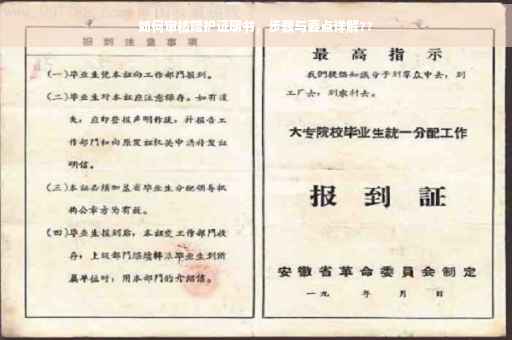 如何审核监护证明书 步骤与要点详解??
报到注意事项
(一)毕业生凭本証向工作部門报到。
(二)毕业生对本証应注意保存。如有遗
失，应即登报声明作废，并报告工
作部門和向原发証机关申请补发証
明信。
(三)本証必须加盖省毕业生分配领导机
构公章方为有效。
(四)毕业生报到后，本証交工作部門收
存；上级部門继续转派毕业生到所
属单位时，用本部門的介绍信。
最高指示
我們提倡知識分子到羣众中去，到
工厂去，到农村去。
大专院校毕业生統一分配工作
报到証
安徽省革命委員会制定
一九 年 月 日